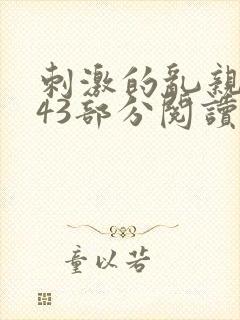 刺激的乱親
43部分閱讀
童以若